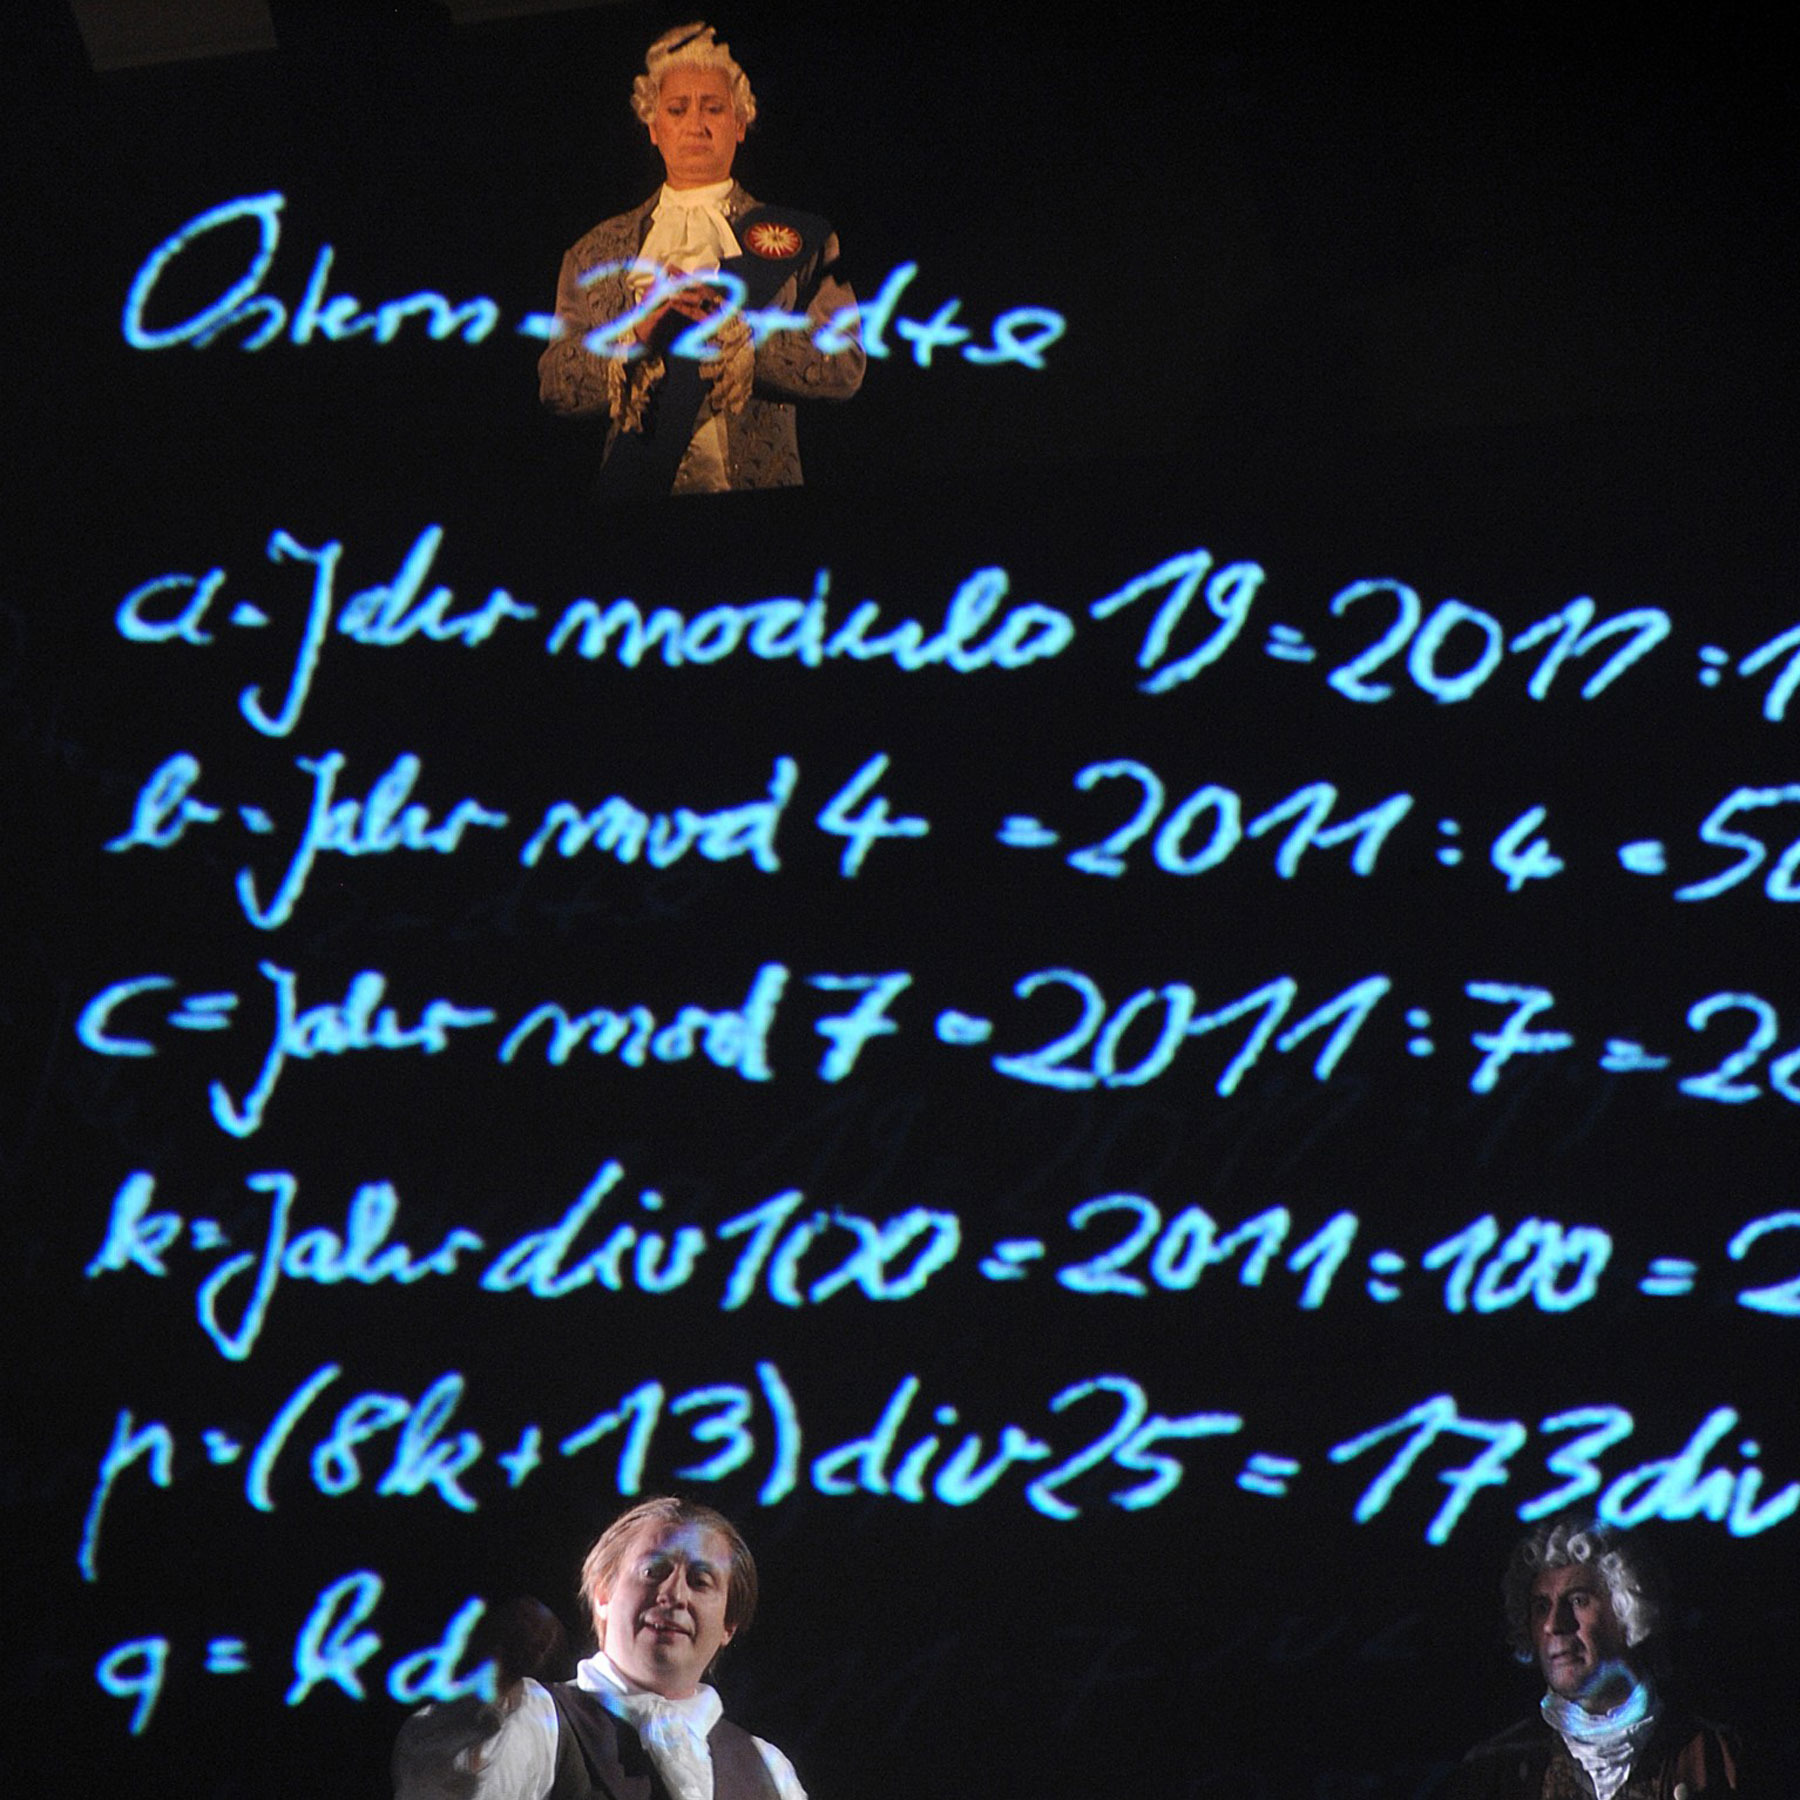 Ostern = 22 + d + e
a = Jahr modulo 19 = 2011 : 1
b = Jahr mod 4 = 2011 : 4 = 50
c = Jahr mod 7 = 2011 : 7 = 2
k = Jahr div 100 = 2011 : 100 = 2
p = (8k + 13) div 25 = 173 div
q = k di